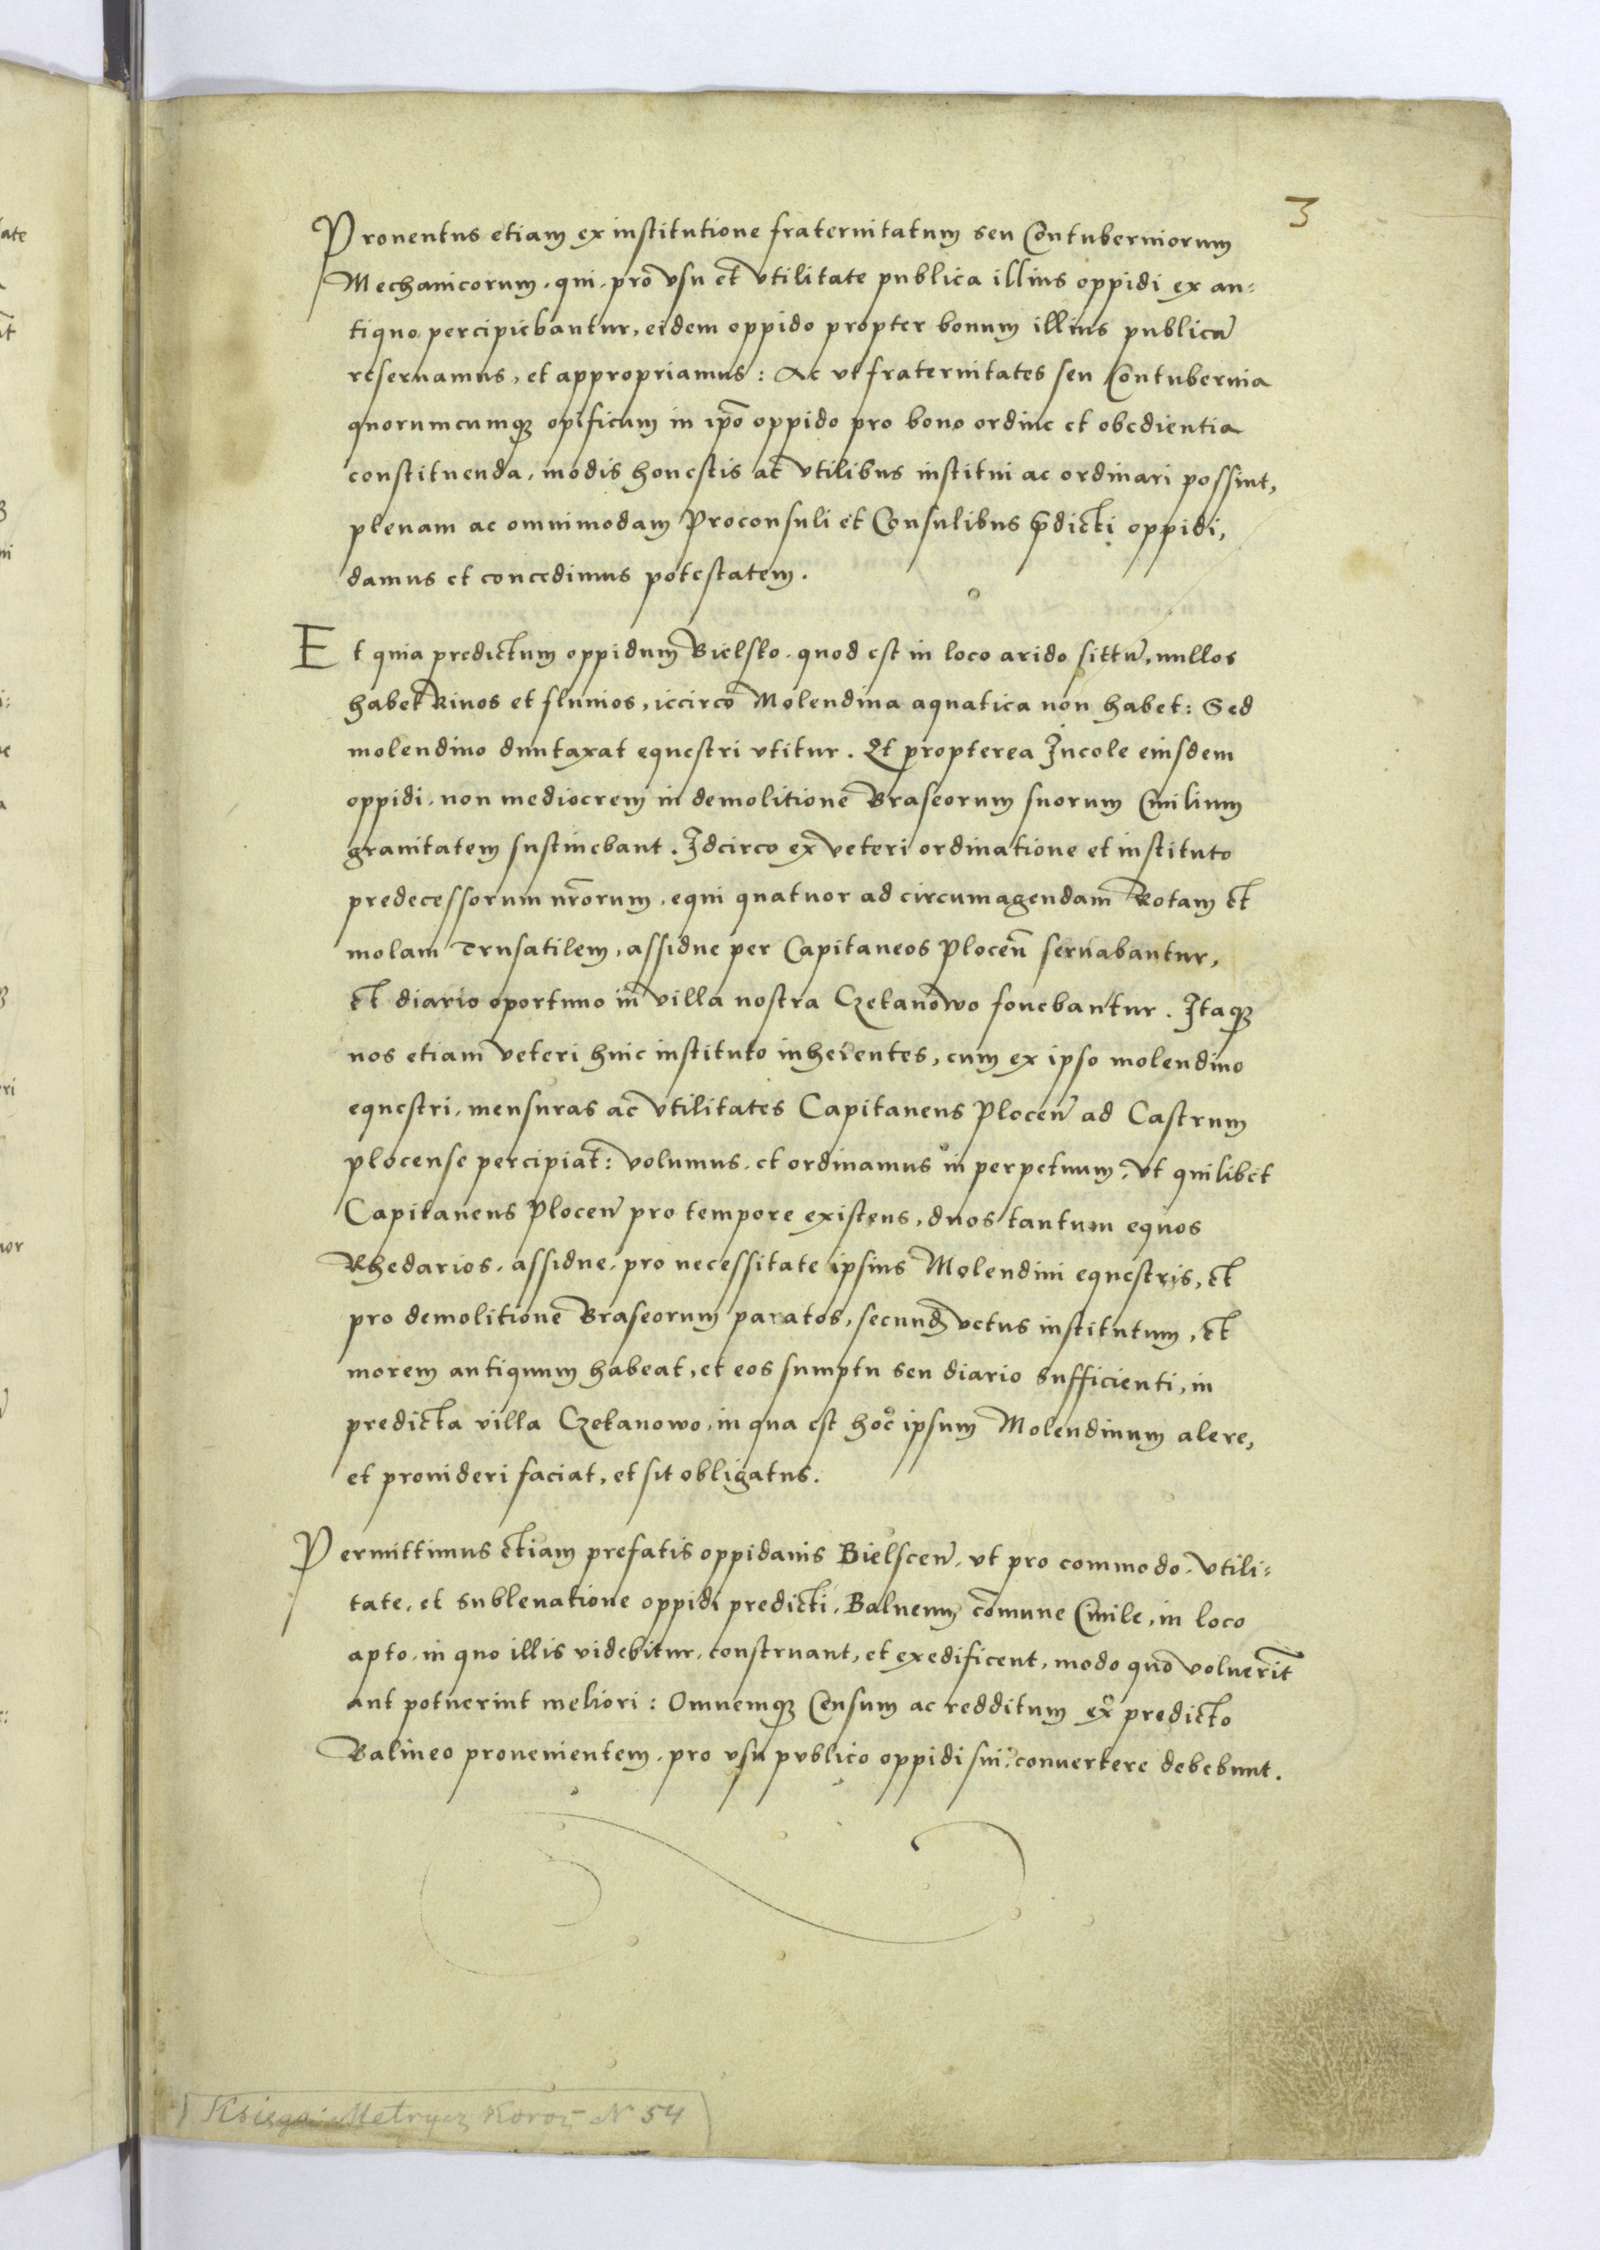 3
Prouentus etiam ex institutione fraternitatum seu Contuberniorum
Mechanicorum, qui pro vsu et vtilitate publica illius oppidi ex an=
tiquo percipiebantur, eidem oppido propter bonum illius publicũ
reseruamus, et appropriamus: Ac vt fraternitates seu Contubernia
quorumcumq; opificum in ip̃o oppido pro bono ordine et obedientia
constituenda, modis honestis ac vtilibus institui ac ordinari possint,
plenam ac omnimodam Proconsuli et Consulibus p̃dicti oppidi,
damus et concedimus potestatem.
Et quia predictum oppidum Bielsko, quod est in loco arido sittũ, nullos
habet Riuos et fluuios, iccirco Molendina aquatica non habet: Sed
molendino duntaxat equestri vtitur. Et propterea Incole eiusdem
oppidi, non mediocrem in demolitione Braseorum suorum Ciuilium
grauitatem sustinebant. Idcirco ex veteri ordinatione et instituto
predecessorum nr̃orum, equi quatuor ad circumagendam Rotam et
molam Trusatilem, assidue per Capitaneos Plocen̄ seruabantur,
et diario oportuno in villa nostra Czekanowo fouebantur. Itaq;
nos etiam veteri huic instituto inherentes, cum ex ipso molendino
equestri, mensuras ac vtilitates Capitaneus Plocen̄ ad Castrum
plocense percipiat: volumus, et ordinamus in perpetuum, vt quilibet
Capitaneus Plocen̄ pro tempore existens, duos tantum equos
Rhedarios, assidue, pro necessitate ipsius Molendini equestris, et
pro demolitione Braseorum paratos, secund̃ vetus institutum, et
morem antiquum habeat, et eos sumptu seu diario sufficienti, in
predicta villa Czekanowo, in qua est hoc ipsum Molendinum alere,
et prouideri faciat, et sit obligatus.
Permittimus etiam prefatis oppidanis Bielscen̄, vt pro commodo, vtili=
tate, et subleuatione oppidi predicti, Balneum com̄une Ciuile, in loco
apto, in quo illis videbitur, construant, et exedificent, modo quo voluerīt
aut potuerint meliori: Omnemq; Censum ac redditum ex predicto
Balineo prouenientem, pro vsu publico oppidi sui, conuertere debebunt.
Księga Metrycz Koroñ N 54